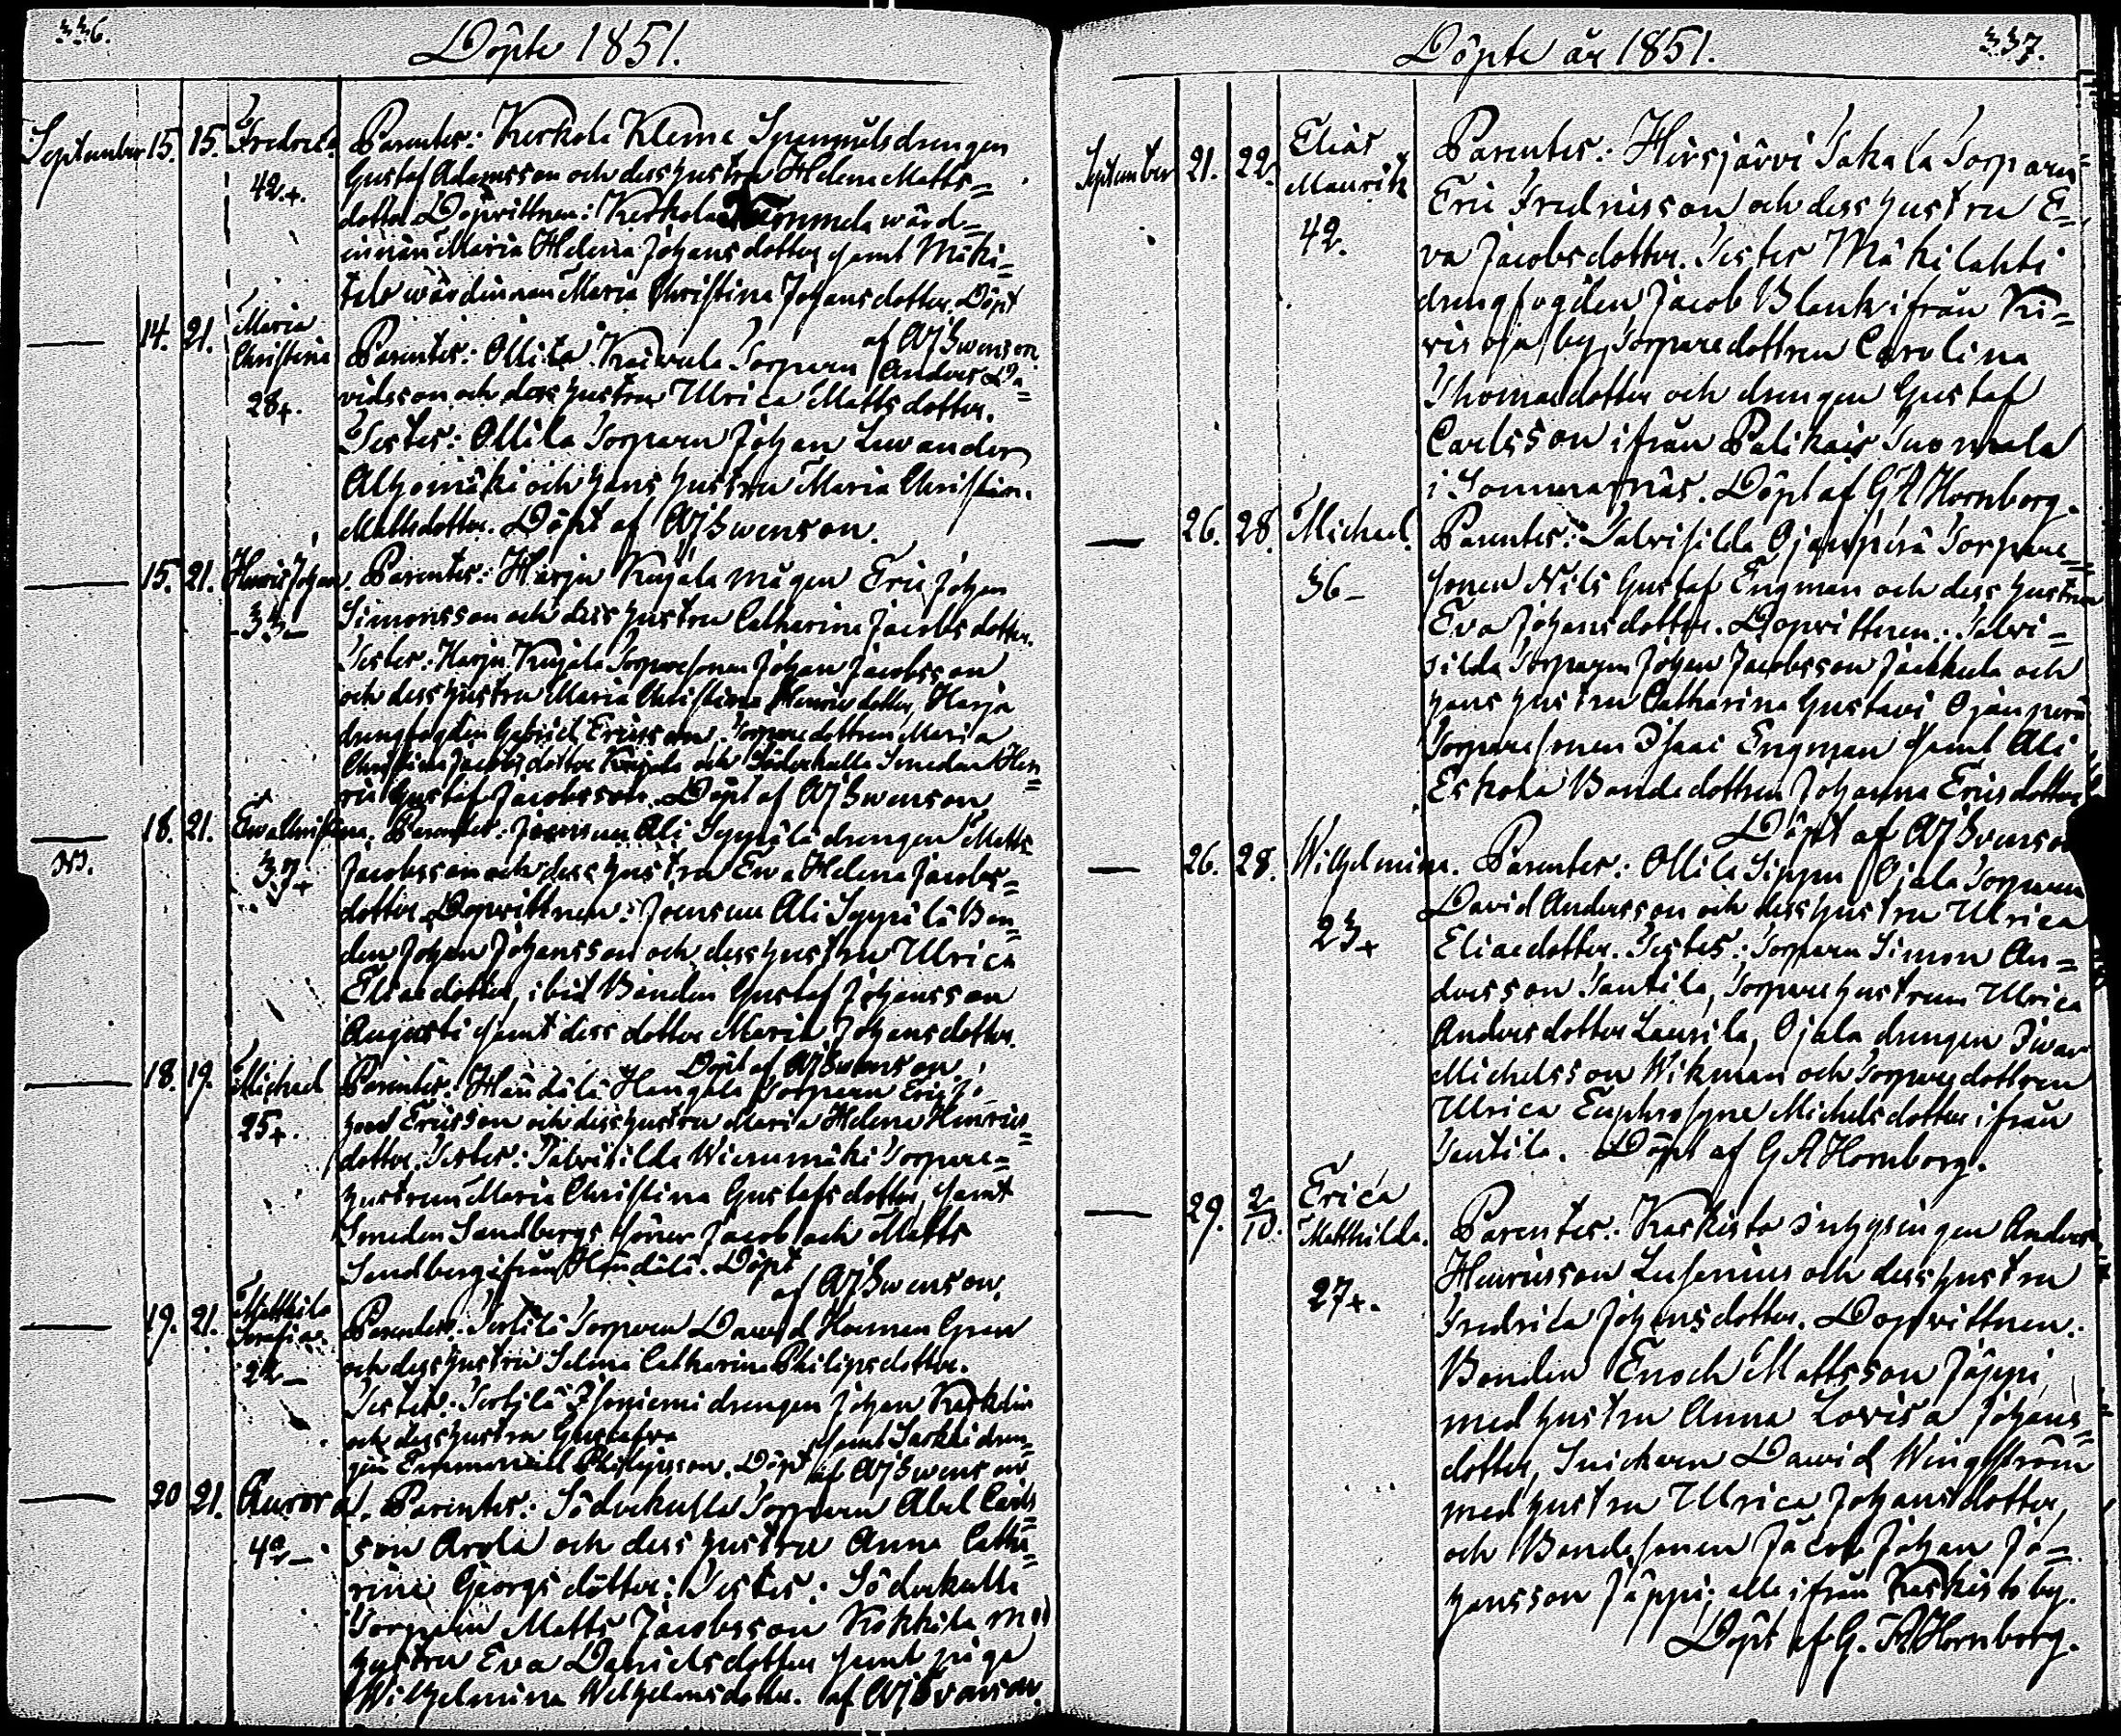 336.
Döpte 1851.
September 15. 15. Fredrica.
42.+.
Parenter: Kerkola Kleme drengen
Gustaf Adamsson och dess hustru Helena Matts=
dotter. Dopvittnen: Kerkola wärd=
innan Maria Helena Johansdotter samt Mäki=
talo wärdinnan Maria Christina Johansdotter. Döpt
af AJ Swenson
— 14. 21. Maria
Christina
28+.
Parenter: Ollila Torparen Anders Da=
vidsson och dess hustru Ulrica Mattsdotter.
Testes: Ollila Torparen Johan Lewander
och hans hustru Maria Christin.
Mattsdotter. Döpt af AJ Swenson.
— 15. 21. Henric Johan.
33—
Parenter: Harju Kujala mågen Eric Johan
Simonsson och dess hustru Catharina Jacobsdotter.
Testes: Harju Kujala Torparesonen Johan Jacobsson
och dess hustru Maria Christina Henricsdotter, Harju
drengfogden Gabriel Ericsson, Torparedottren Maria
Christina Jacobsdotter Kujala och Söderkulla Smeden Hen=
ric Gustaf Jacobsson. Döpt af AJ Swenson
— 18. 21. Eva Christina.
37+
Parenter: Joensuu Ali Syppälä drengen Matts
Jacobsson och dess hustru Eva Helena Jacobs=
dotter. Dopvittnen: Joensuu Ali Syppälä Bon=
den Johan Johansson och dess hustru Ulrica
Eliaedotter, ibid Bonden Gustaf Johansson
Augusti samt dess dotter Maria Johansdotter.
Döpt af AJ Swenson
— 18. 19. Michael
25+.
Parenter: Händälä Hangala Torparen Eric Jo=
han Ericsson och dess hustru Maria Helena Henrics=
dotter. Testes: Torpare=
hustrun Maria Christina Gustafsdotter, samt
Smeden Sandbergs söner Jacob och Matts
Sandberg ifrån Händälä. Döpt
af AJ Swenson.
— 19. 21. Mathilda
Serafia.
22—
Parenter: Torparen David Gran
och dess hustru Selma Catharina Philipsdotter.
Testes: Isoniemi drengen Johan
och dess hustru Gustafva samt dren=
gen Emmanuel Philipsson. Döpt af AJ Swenson
— 20 21. Aurora.
42—
Parenter: Söderkulla Torparen Abel Carls=
son Arola och dess hustru Anna Catha=
rina Georgsdotter: Testes: Söderkulla
Torparen Matts Jacobsson Kokkila med
hustru Eva Danielsdotter samt piga
Wilhelmina Wilhelmsdotter. af AJ Swenson.
Döpte år 1851.
337.
September 21. 22. Elias
Mauritz
42.
Parenter: Hirsjärvi Torparen
Eric Fredricsson och dess hustru E=
va Jacobsdotter. Testes Mäkilahti
drengfogden Jacob Blank ifrån Ki=
visoja by, Torparedottren Carolina
Thomaedotter och drengen Gustaf
Carlsson ifrån Palikais Suomela
i Sommarnäs. Döpt af G A Hornborg.
— 26. 28. Michael.
36—
Parenter: Talvisilda Ojanperä Torpare=
sonen Nils Gustaf Engman och dess hustru
Eva Johansdotter. Dopvittnen: Talvi=
silda Torparen Johan Jacobsson Jackkula och
hans hustru Catharina Gustavi Ojanperä
Torparesonen Isaac Engman samt Ali
Eskola Bondedottren Johanna Ericsdotter
Döpt af AJ Svenson
— 26. 28. Wilhelmina.
23+
Parenter: Ollila Sippu Ojala Torparen
David Andersson och dess hustru Ulrica
Eliaedotter. Testes: Torparen Simon An=
dersson Santila, Torparehustrun Ulrica
Andersdotter Laurila, Ojala drengen Iwar
Michelsson Wikman och Torparedottren
Ulrica Euphrosyne Michelsdotter ifrån
Santila. Döpt af G A Hornborg.
— 29. 2/10. Erica
Matthilda.
27+.
Parenter: Kaskisto Inhysingen Anders
Henricsson Lusenius och dess hustru
Fredrica Johansdotter. Dopvittnen:
Bonden Enoch Mattsson Jäppi
med hustru Anna Lovisa Johans=
dotter, Snickaren David Wingström
med hustru Ulrica Johansdotter,
och Bondesonen Jacob Johan Jo=
hansson Jäppi; alla ifrån Kaskisto by.
Döpt af G. A Hornborg.